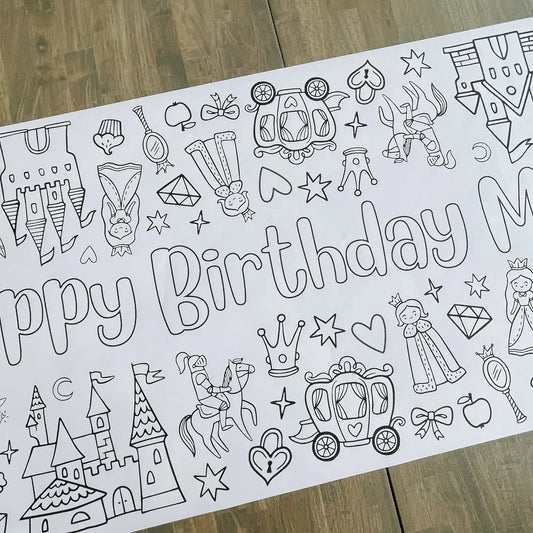 ppy Birthday M